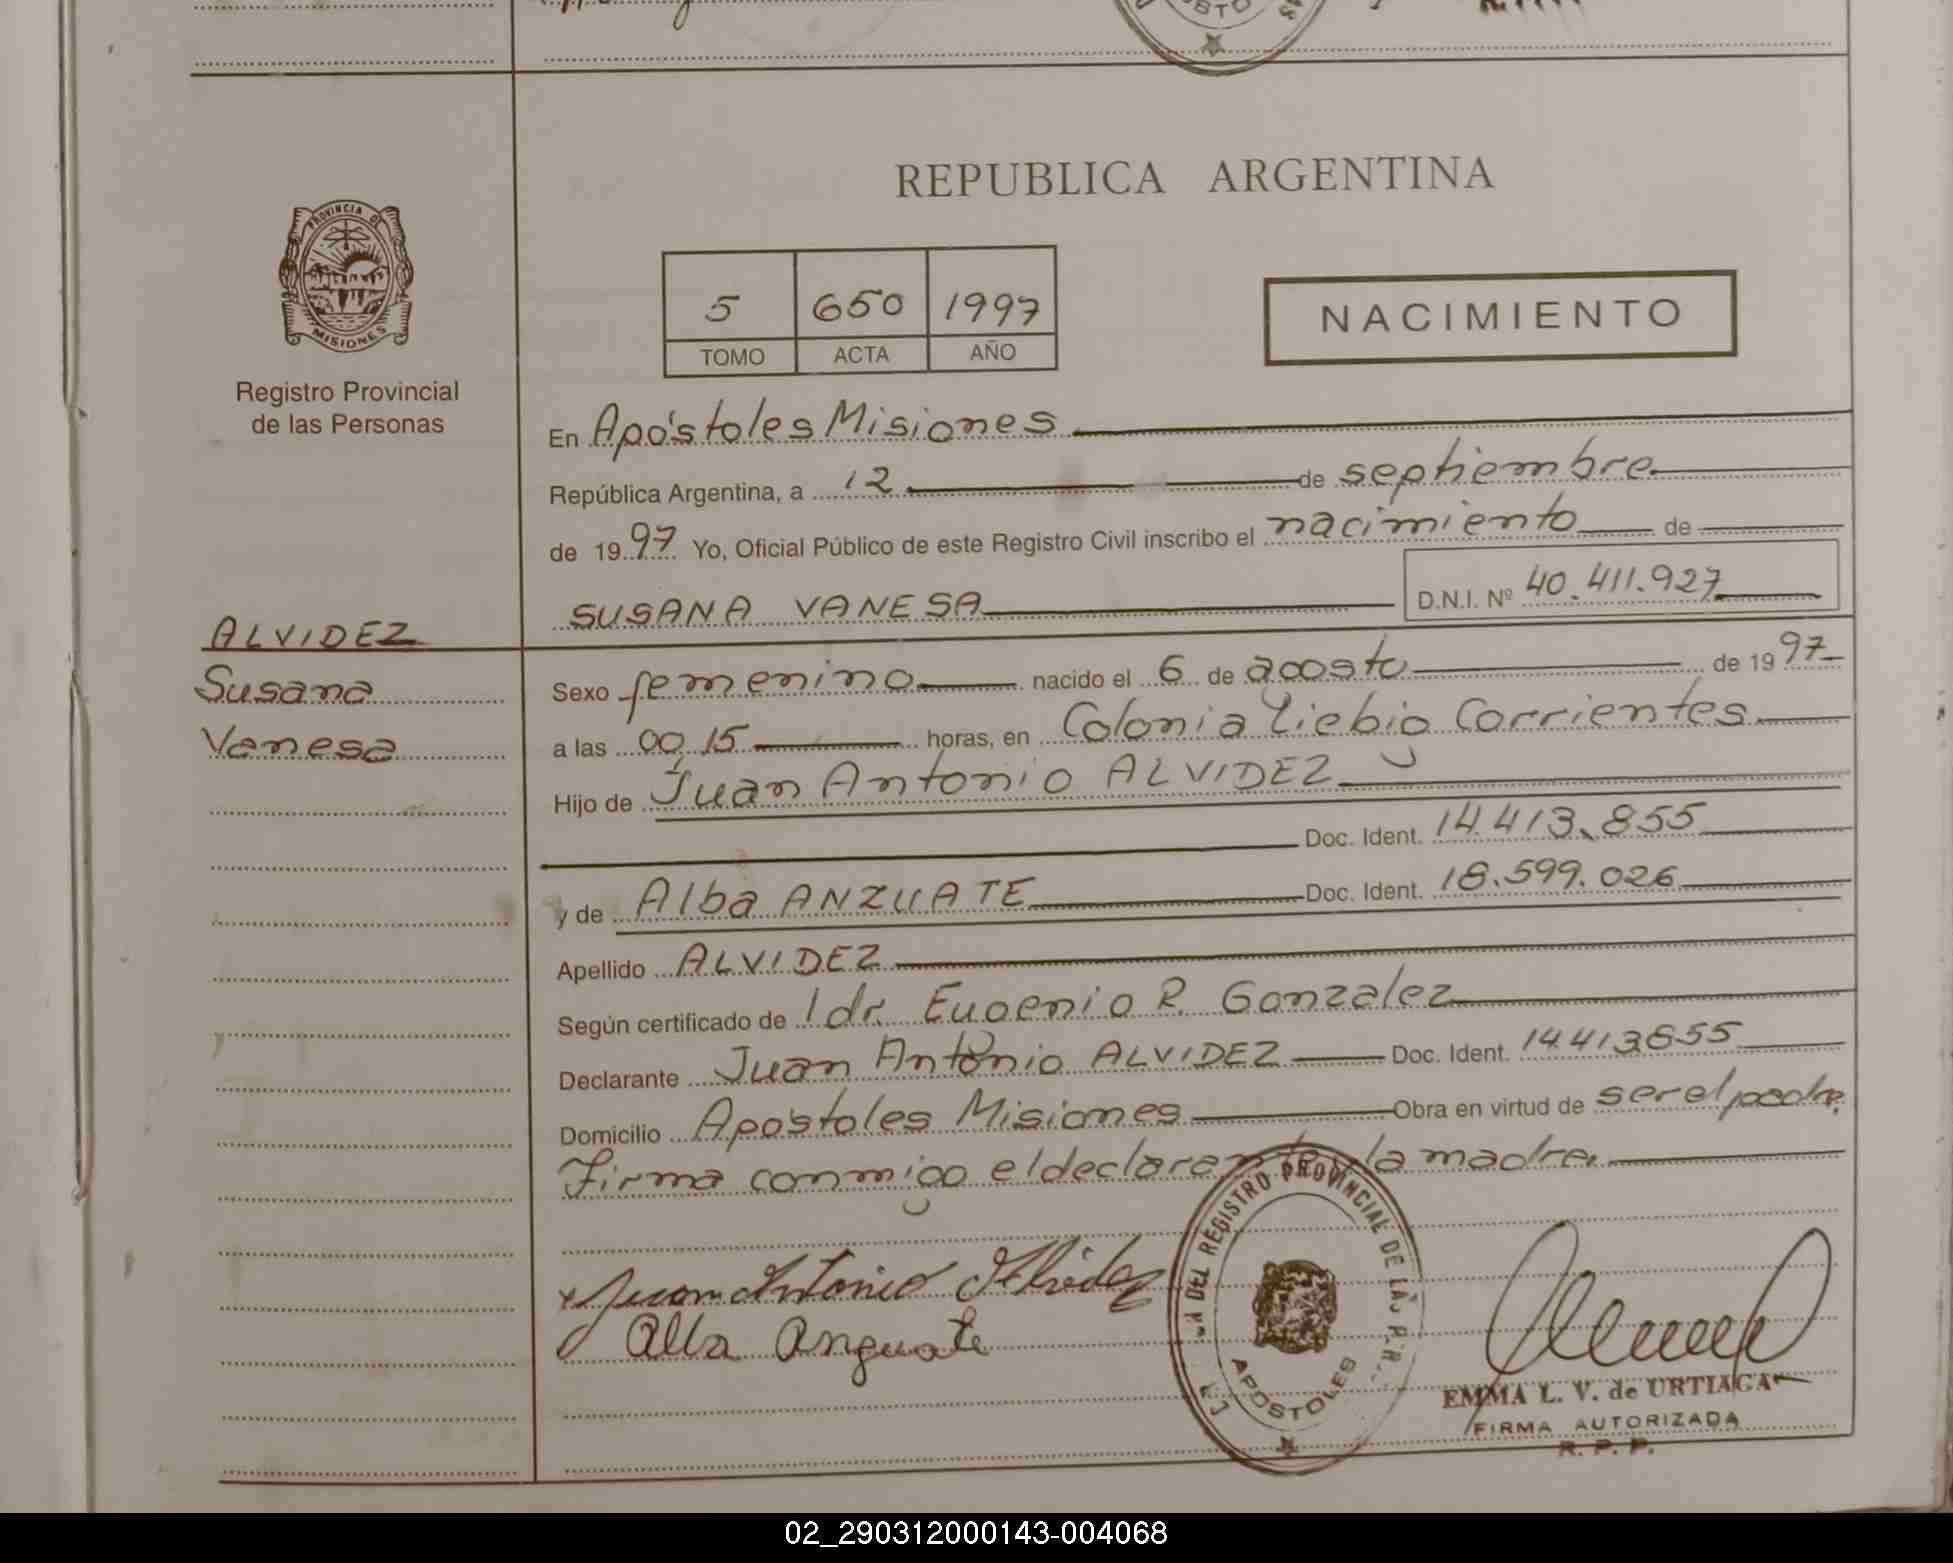 REPUBLICA ARGENTINA
PROVINCIA DE
MISIONES
Registro Provincial
de las Personas
5 650 1997
TOMO ACTA AÑO
NACIMIENTO
En Apóstoles Misiones
República Argentina, a 12 de septiembre
de 1997 Yo, Oficial Público de este Registro Civil inscribo el nacimiento de
SUSANA VANESA D.N.I. Nº 40.411.927
ALVIDEZ
Susana
Vanesa
Sexo femenino nacido el 6 de agosto de 1997
a las 00,15 horas, en Colonia Liebig Corrientes
Hijo de Juan Antonio ALVIDEZ
Doc. Ident. 14.413.855
y de Alba ANZUATE Doc. Ident. 18.599.026
Apellido ALVIDEZ
Según certificado de l dr. Eugenio R. Gonzalez
Declarante Juan Antonio ALVIDEZ Doc. Ident. 14.413.855
Domicilio Apóstoles Misiones Obra en virtud de ser el padre.
Firma conmigo el declarante y la madre.
Juan Antonio Alvidez
Alba Anzuate
DEL REGISTRO PROVINCIAL DE LAS
APOSTOLES
EMMA L. V. de URTIAGA
FIRMA AUTORIZADA
R. P. P.
02_290312000143-004068